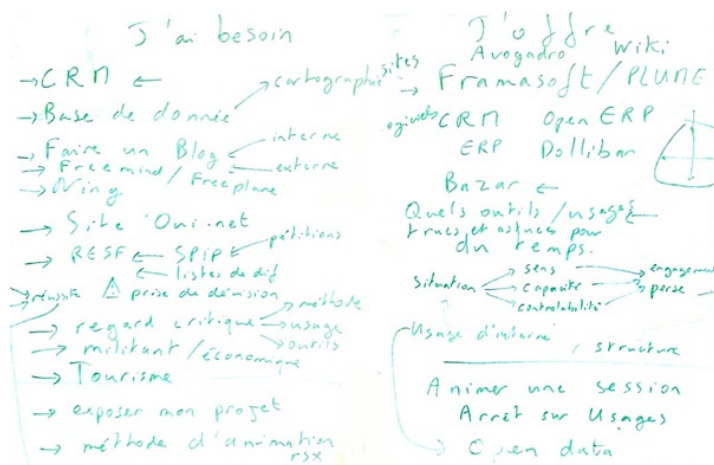 J'ai besoin
→ CRM ←
cartographie
→ Base de donnée
→ Faire un Blog
interne
externe
→ Freemind / Freeplane
→ Ning
→ Site Oui.net
→ RESF ← SPIP ← pétitions
← listes de dif
→ réussite ⚠ prise de décision
→ regard critique → méthode
→ usage
→ outils
→ militant / économique
→ Tourisme
→ exposer mon projet
→ méthode d'animation
rsx
J'offre
Avogadro Wiki
sites
→ Framasoft / PLUME
logiciels CRM Open ERP
ERP Dollibar
Bazar ←
Quels outils / usages ←
trucs et astuces pour
du temps.
situation → sens → engagement
→ capacité → perse
→ controlabilité
Usage d'interne
/ structure
Animer une session
Arrêt sur Usages
→ Open data